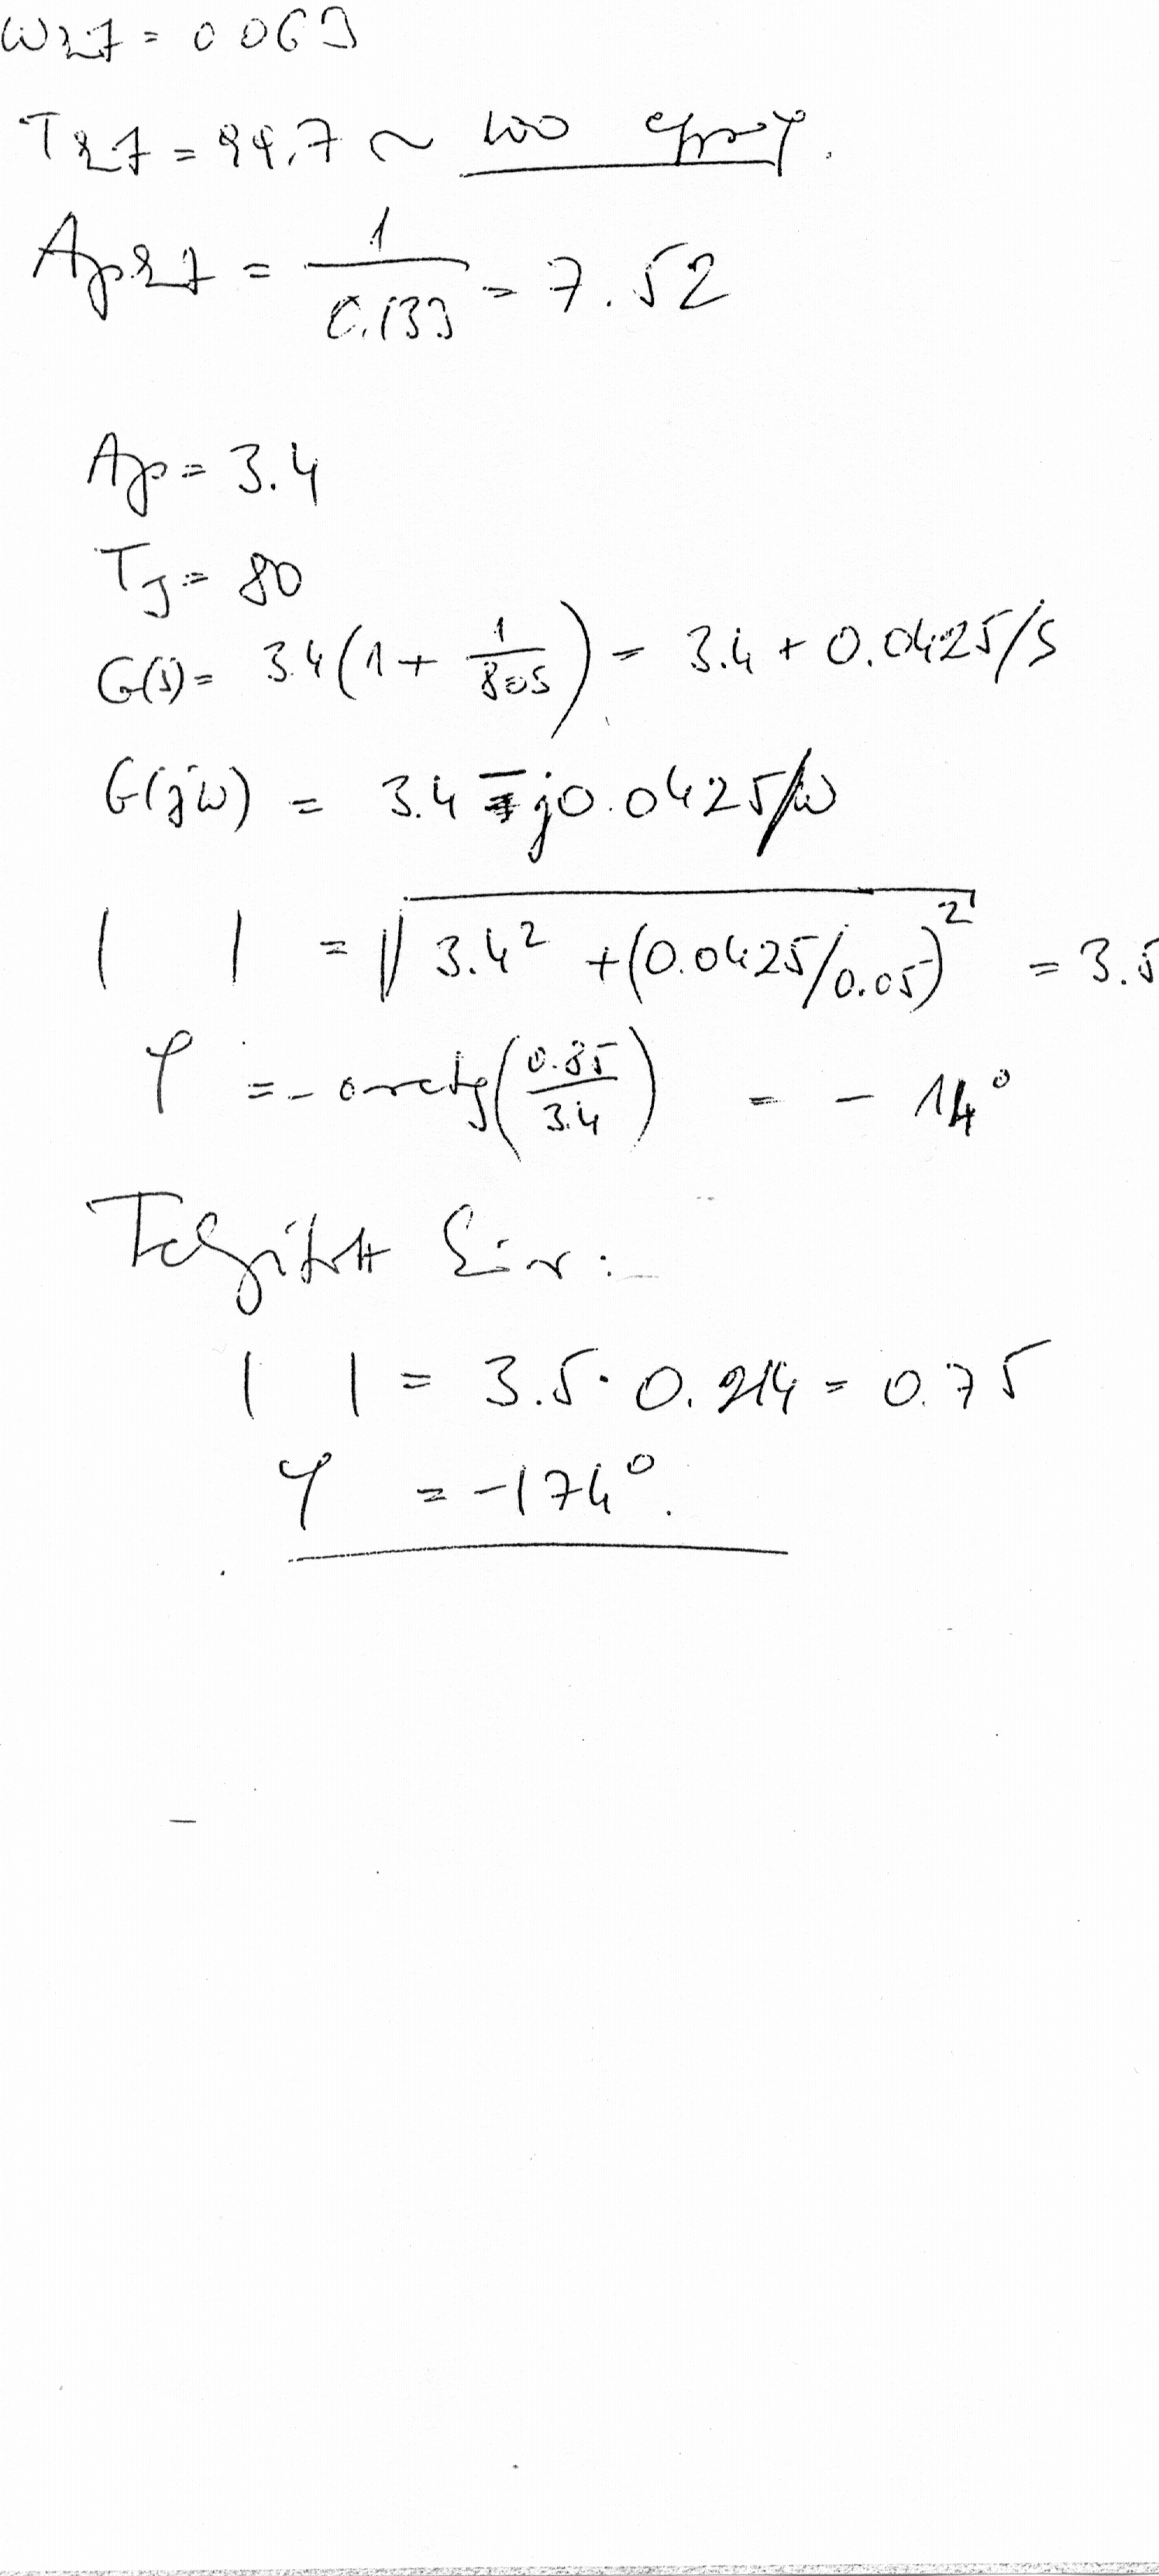 ωkt = 0.063
Tkt = 99.7 ~ 100
Apkt = 1/0.133 = 7.52
Ap = 3.4
TJ = 80
G(s) = 3.4(1 + 1/80s) = 3.4 + 0.0425/s
G(jω) = 3.4 - j0.0425/ω
| | = √(3.4² + (0.0425/0.05)²) = 3.5
φ = - arctg(0.85/3.4) = - 14°
| | = 3.5 · 0.214 = 0.75
φ = -174°.